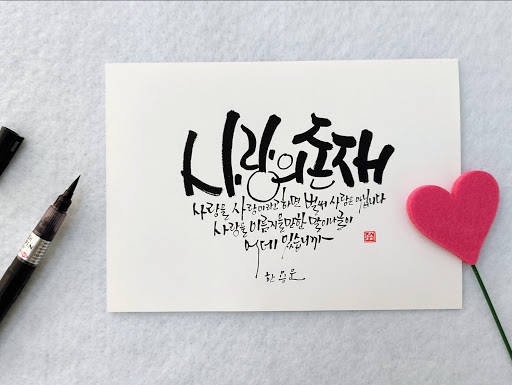 사랑의 존재
사랑을 사랑이라고 하면 벌써 사랑은 아닙니다
사랑을 이름지을만한 말이나 글이
어데 있습니까
한용운